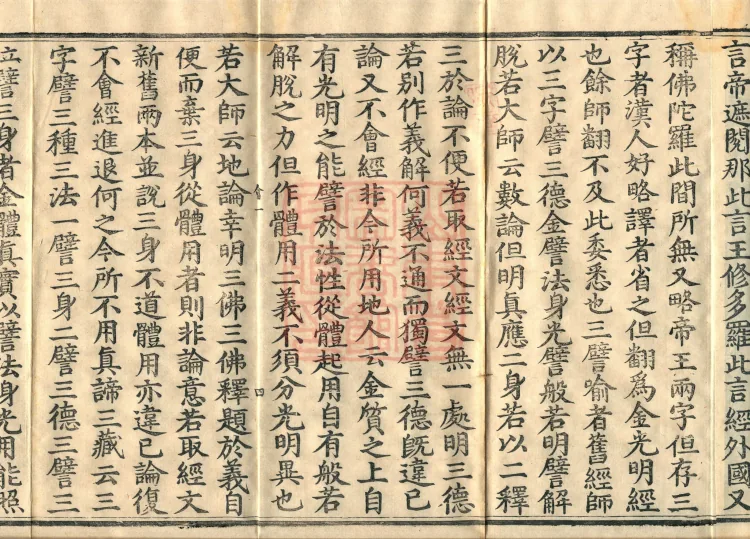 言帝遮閱那此言王修多羅此言經外國又
稱佛陀羅此間所無又略帝王兩字但存三
字者漢人好略譯者省之但翻爲金光明經
也餘師翻不及此委悉也三譬喻者舊經師
以三字譬三德金譬法身光譬般若明譬解
脫若大師云數論但明真應二身若以二釋
三於論不便若取經文經文無一處明三德
若別作義解何義不通而獨譬三德旣違已
論又不會經非今所用地人云金質之上自
有光明之能譬於法性從體起用自有般若
解脫之力但作體用二義不須分光明異也
若大師云地論幸明三佛三佛釋題於義自
便而棄三身從體用者則非論意若取經文
新舊兩本並說三身不道體用亦違已論復
不會經進退何之今所不用真諦三藏云三
字譬三種三法一譬三身二譬三德三譬三
立譬三身者金體真實以譬法身光用能照